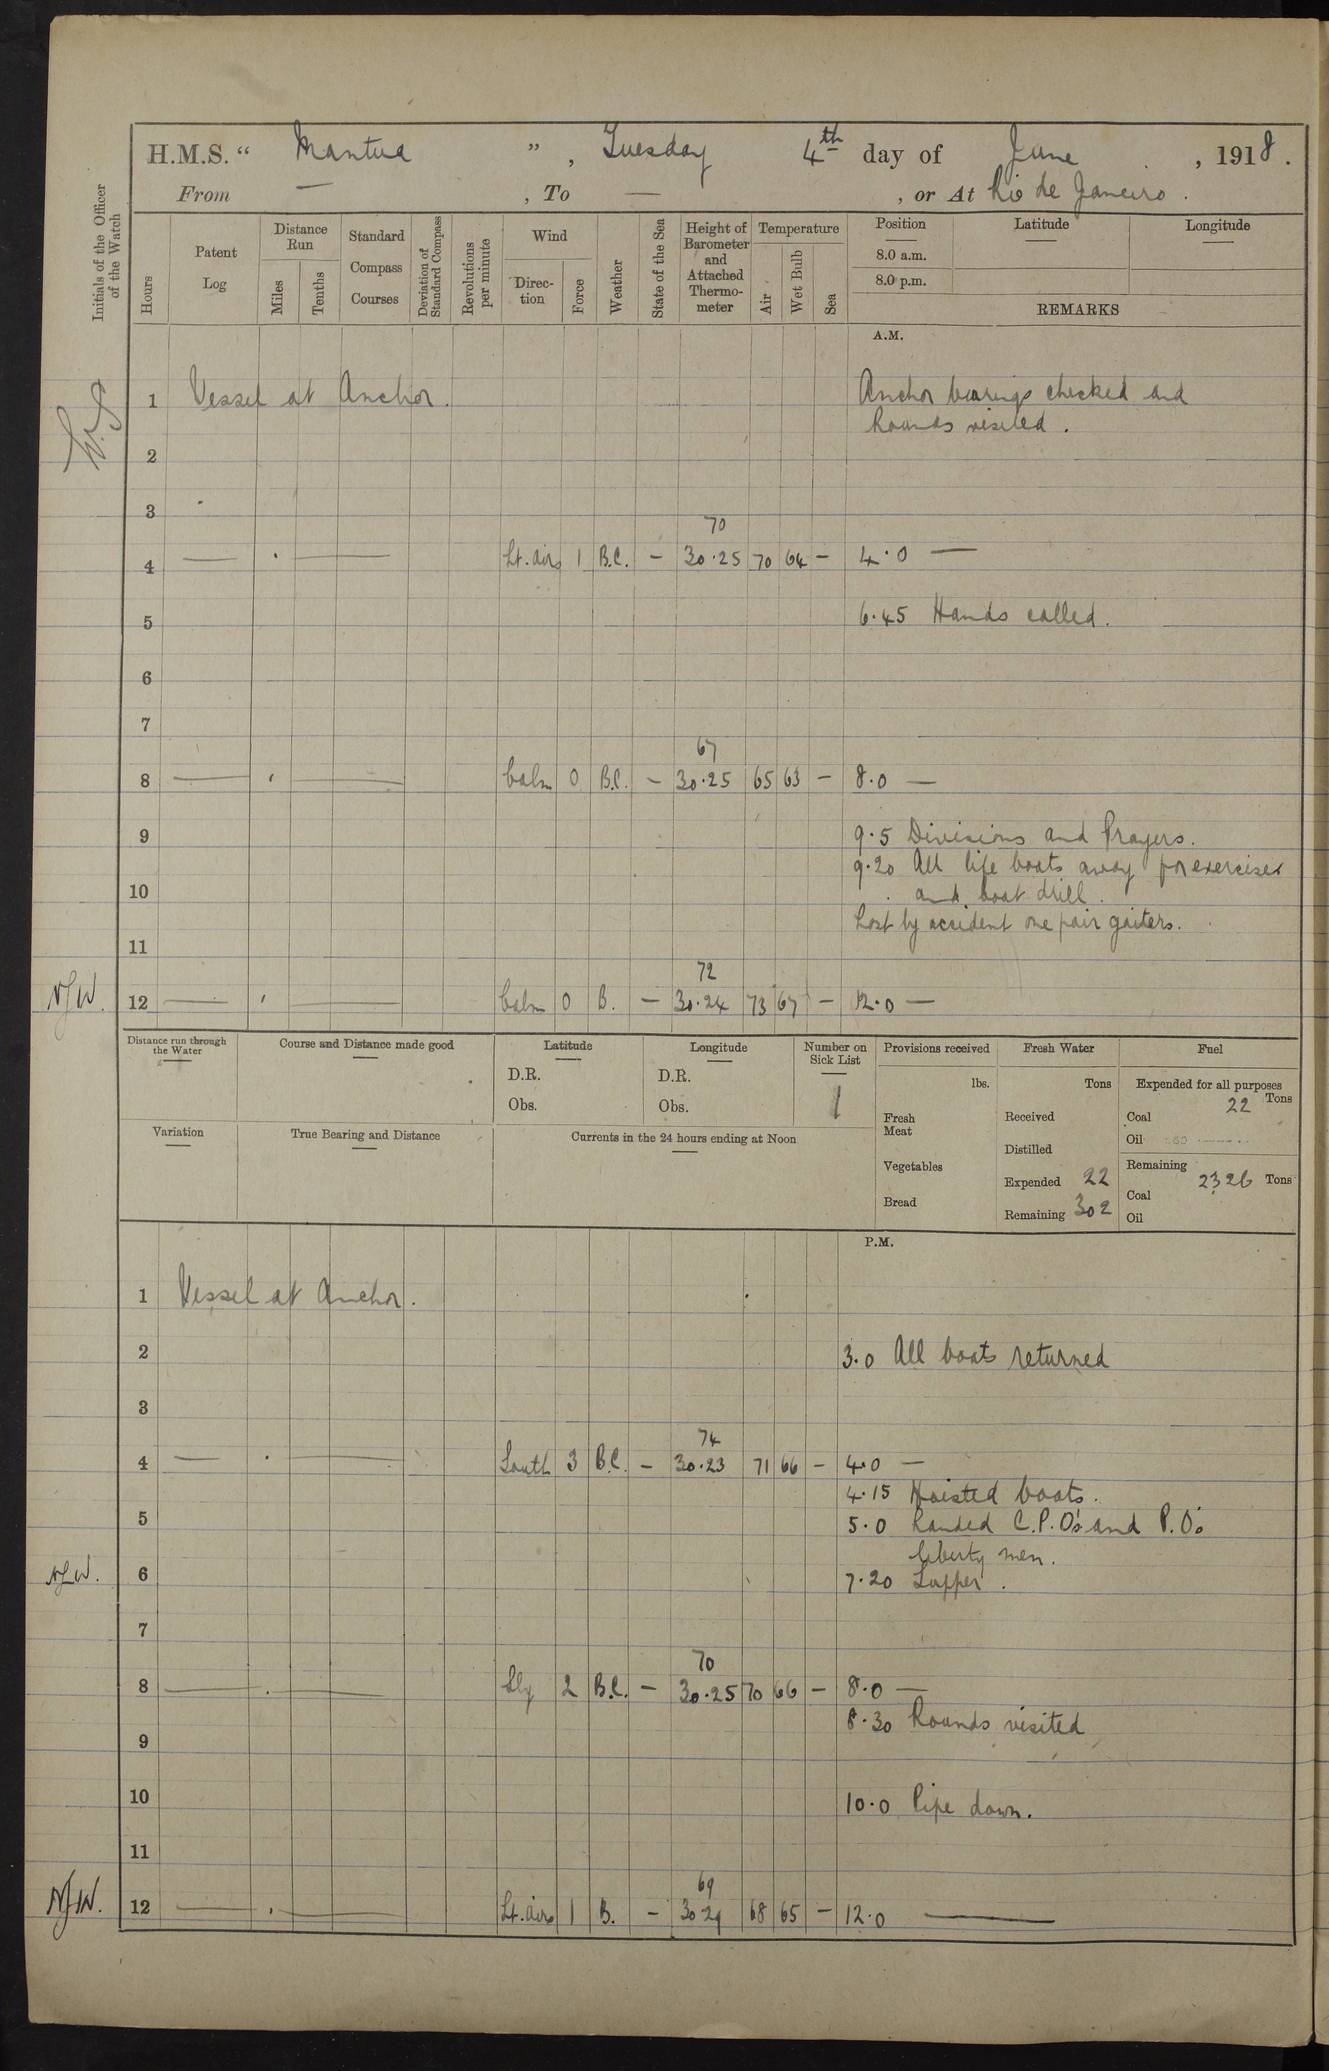 H.M.S. “ Mantua ” , Tuesday 4th day of June , 1918 .
From — , To — , or At Rio de Janeiro .
Initials of the Officer of the Watch
Hours
Patent Log
Distance Run
Miles
Tenths
Standard Compass Courses
Deviation of Standard Compass
Revolutions per minute
Wind
Direc-tion
Force
Weather
State of the Sea
Height of Barometer and Attached Thermo-meter
Temperature
Air
Wet Bulb
Sea
Position
8.0 a.m.
8.0 p.m.
Latitude
Longitude
REMARKS
A.M.
1 Vessel at Anchor. Anchor bearings checked and
Rounds visited.
2
3
70
4 — . — Lt. airs 1 B.C. — 30.25 70 64 — 4.0 —
5 6.45 Hands called.
6
7
67
8 — . — Calm 0 B.C. — 30.25 65 63 — 8.0 —
9 9.5 Divisions and Prayers.
9.20 All life boats away for exercises
10 and boat drill.
Lost by accident one pair gaiters.
11
72
NJW. 12 — . — Calm 0 B. — 30.24 73 67 — 12.0 —
Distance run through the Water
Course and Distance made good
Latitude
D.R.
Obs.
Longitude
D.R.
Obs.
Number on Sick List
1
Provisions received
lbs.
Fresh Meat
Vegetables
Bread
Fresh Water
Tons
Received
Distilled
Expended 22
Remaining 302
Fuel
Expended for all purposes
Tons
Coal 22
Oil
Remaining
2326 Tons
Coal
Oil
Variation
True Bearing and Distance
Currents in the 24 hours ending at Noon
P.M.
1 Vessel at Anchor.
2 3.0 All boats returned
3
74
4 — . — South 3 B.C. — 30.23 71 66 — 4.0 —
4.15 Hoisted boats.
5 5.0 Landed C.P.O's and P.O's
liberty men.
NJW. 6 7.20 Supper.
7
70
8 — . — Sly 2 B.C. — 30.25 70 66 — 8.0 —
8.30 Rounds visited
9
10 10.0 Pipe down.
11
69
NJW. 12 — . — Lt. airs 1 B. — 68 65 — 12.0 —